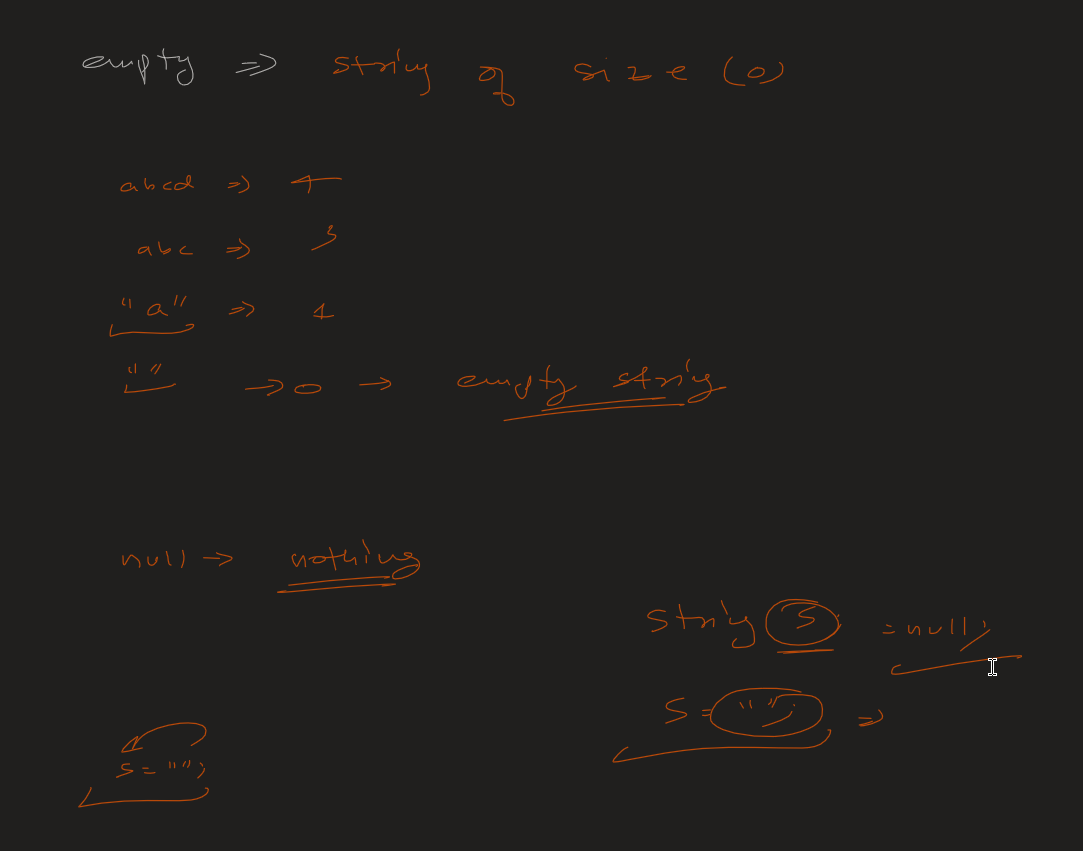 empty => string of size (0)
abcd => 4
abc => 3
"a" => 1
"" -> 0 -> empty string
null -> nothing
String s = null;
s = ""; =>
s = "";